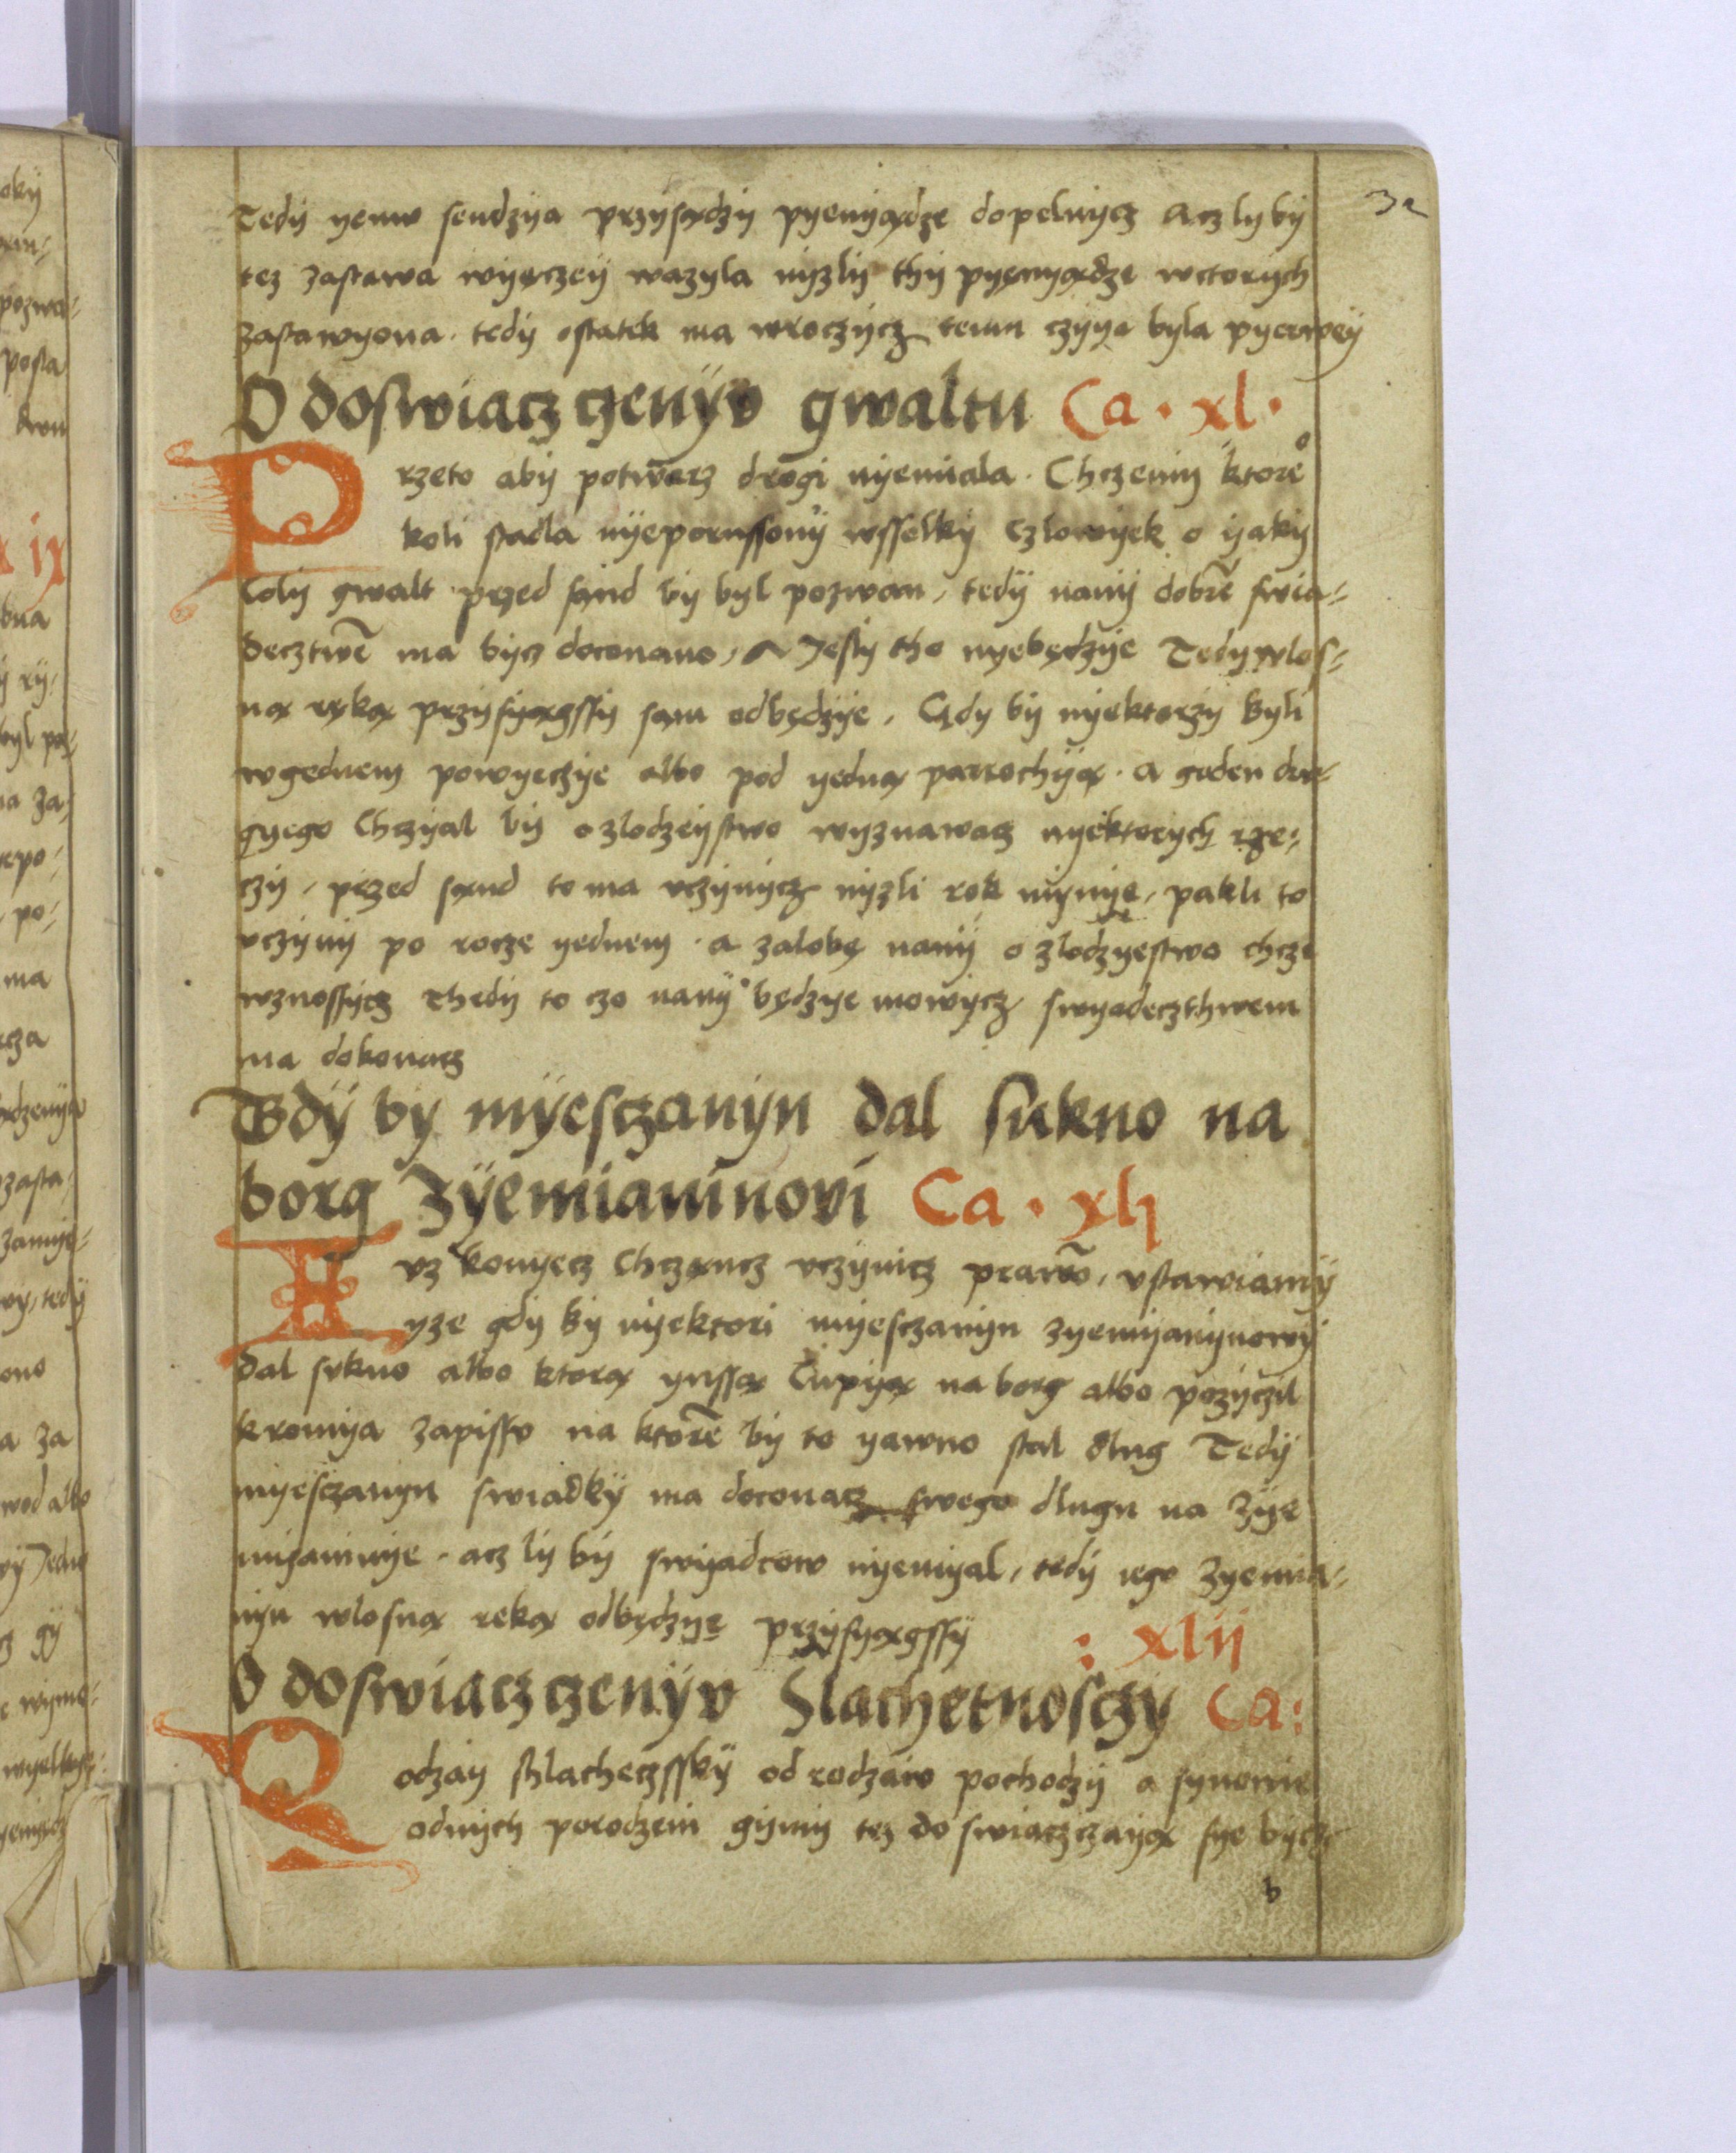 32
Tedÿ yemw sendzÿa przÿsądzÿ pyenyądze dopelnycz Acz ly bÿ
tez zastawa wÿęczeÿ wazyla nÿzlÿ thÿ pyęnyądze wctorÿch
zastawyona. tedÿ ostatek ma wroczÿcz temu czyya byla pyerweÿ
O doswiaczczenÿv gwaltu Ca · xl ·
Przeto abÿ potwarz drogi nÿemiala. Chczemÿ ktore°
koli stadla nÿeporussonÿ wsselkÿ czlowÿek o ÿakÿ
colÿ gwalt przed sąnd bÿ bÿl pozwan, tedÿ nanÿ dobrē swia=
decztwē ma bÿcz doconano, A Jestlÿ tho nyebędzÿe Tedÿ wlos=
ną ręką przÿsÿągssÿ sąm odbędzÿe. Gdy bÿ nÿektorzÿ byli
wgednem powyeczÿe albo pod yedną parrochÿą. a geden dru=
gyego chczÿal bÿ o zlodzeÿstwo wyznawacz nyektorych rze=
czÿ, przed sąnd to ma vczÿnÿcz nÿzli rok mÿnÿe, pakli to
vczÿnÿ po rocze yednem. a zalobę nanÿ o zlodzyestwo chcze
wznossÿcz Thedÿ to czo nanÿ będzye mowÿcz swyadeczthwem
ma dokonacz
Gdÿ bÿ mÿesczanÿn dal sukno na
borg zÿemianinovi Ca · xli
Ivz konyecz chcząncz vczÿnicz prawō, vstawiamÿ
yze gdÿ bÿ nÿektori mÿesczanÿn zyemÿanÿnowÿ
dal sukno albo ktorą ynssą cupÿą na borg albo pozÿczil
kromÿa zapissv na ktorē bÿ to yawno stal dlug Tedÿ
mÿesczanÿn swiadkÿ ma doconacz swego dlugu na zÿe
mÿaninÿe. acz lÿ bÿ swÿadcow nÿemÿal, tedÿ iego zyemia=
nÿn wlosną reką odbędzÿe przÿsyągssÿ : xlii
O doswiaczczenÿv slachetnosczÿ Ca:
Rodzaÿ shlacheczsskÿ od rodzaiv pochodzÿ a synowie
odnÿch porodzeni gÿmÿ tez doswiaczczaÿą sÿe bÿcz
b